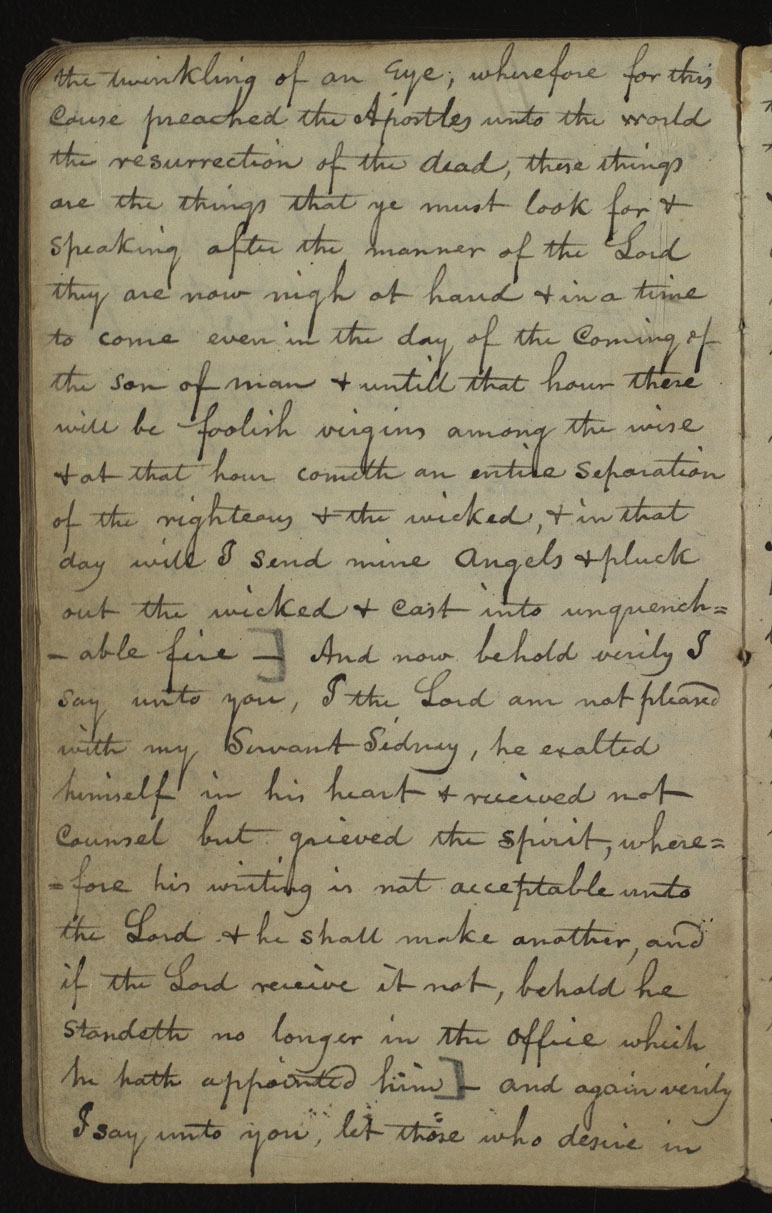 the twinkling of an Eye, wherefore for this
Cause preached the Apostles unto the world
the resurrection of the dead, these things
are the things that ye must look for &
speaking after the manner of the Lord
they are now nigh at hand & in a time
to come even in the day of the Coming of
the son of man & untill that hour there
will be foolish virgins among the wise
& at that hour cometh an entire Separation
of the righteous & the wicked, & in that
day will I send mine Angels & pluck
out the wicked & Cast into unquench=
- able fire —] And now behold verily I
say unto you, I the Lord am not pleased
with my Servant Sidney, he exalted
himself in his heart & received not
Counsel but grieved the spirit, where=
=fore his writing is not acceptable unto
the Lord & he shall make another, and
if the Lord receive it not, behold he
standeth no longer in the office which
he hath appointed him]— and again verily
I say unto you, let those who desire in